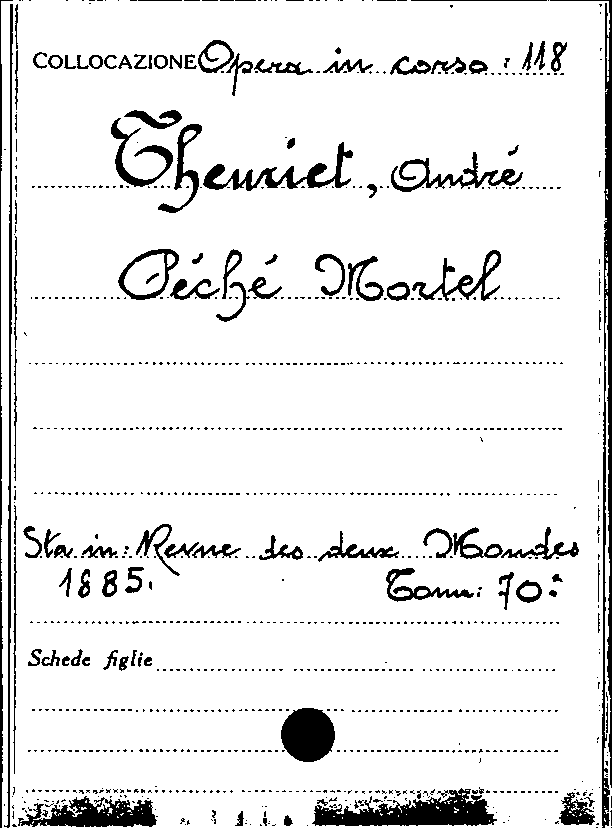 COLLOCAZIONE Opera in corso : 118
Theuriet, André
Péché Mortel
Sta in: Revue des deux Mondes
1885. Tome: 70º
Schede figlie